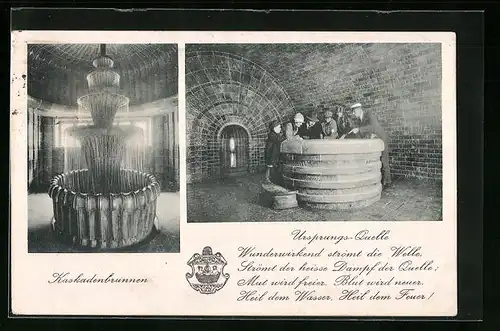 Kaskadenbrunnen
Ursprungs-Quelle
Wunderwirkend strömt die Welle,
Strömt der heisse Dampf der Quelle;
Mut wird freier, Blut wird neuer.
Heil dem Wasser, Heil dem Feuer!